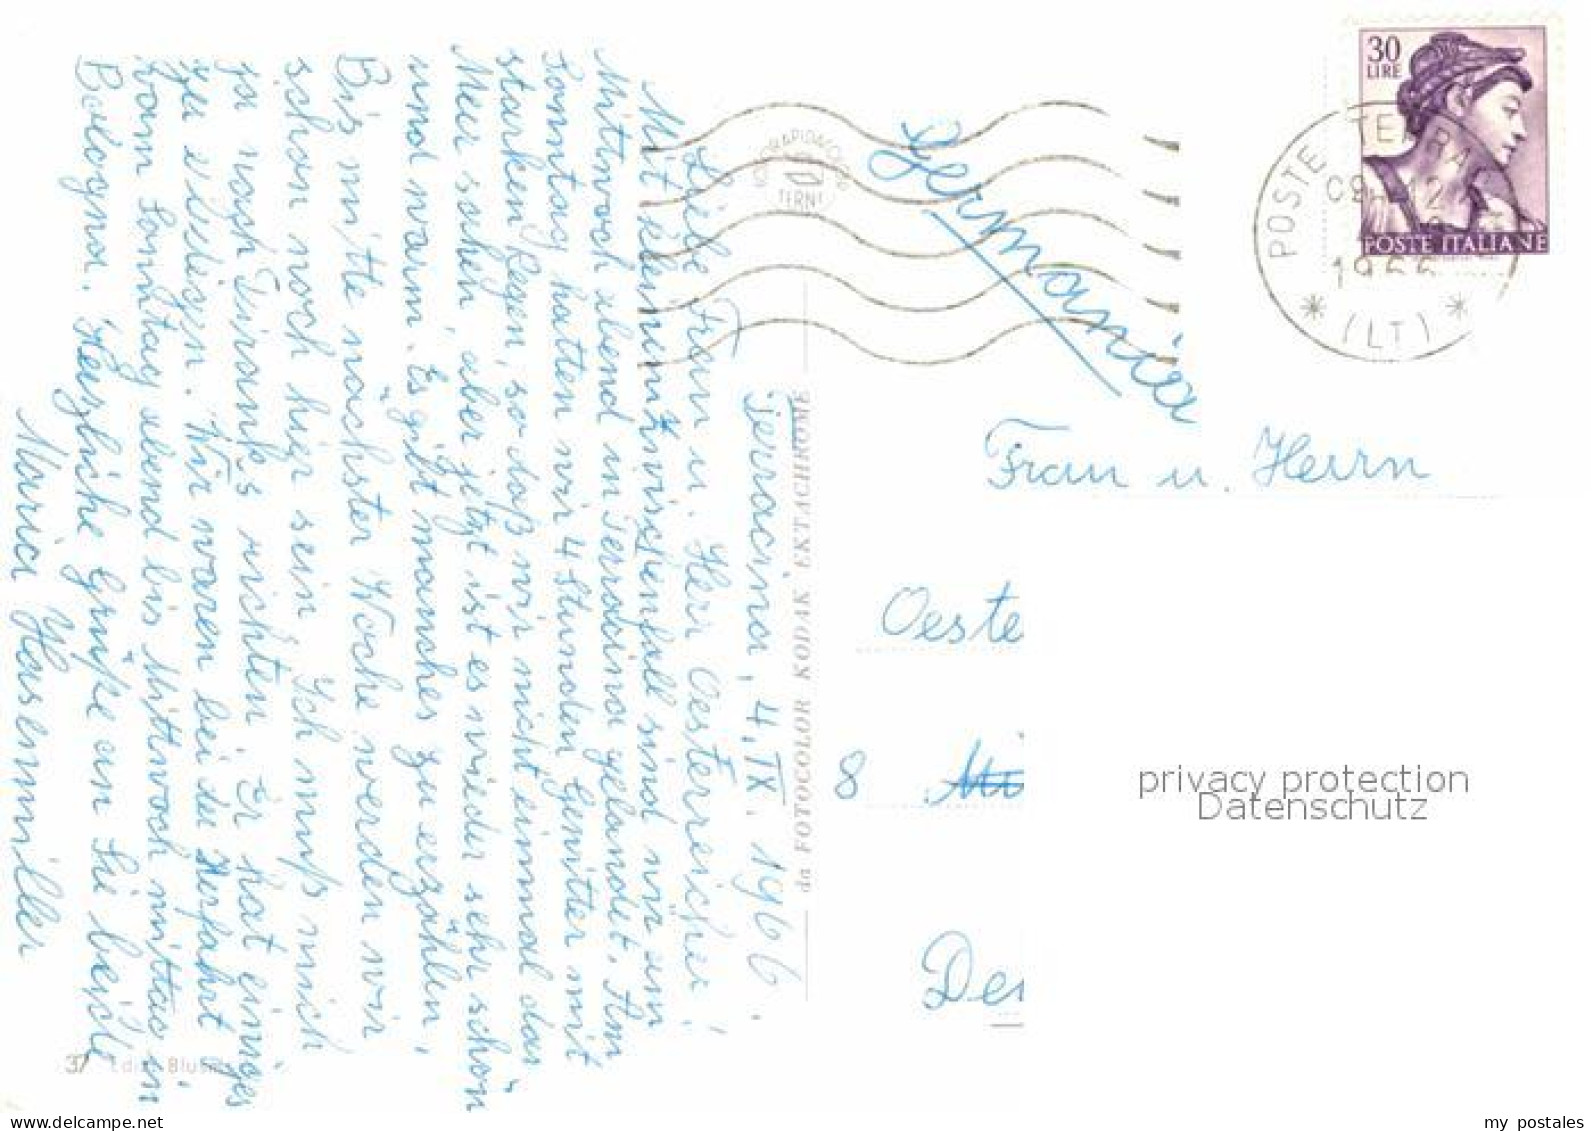 Terracina, 4. IX. 1966.
Liebe Frau u. Herr Oesterreicher!
Mit kleinem Zwischenfall sind wir am
Mittwoch abend in Terracina gelandet. Am
Sonntag hatten wir 4 Stunden Gewitter mit
starken Regen, so daß wir nicht einmal das
Meer sahen, aber jetzt ist es wieder sehr schön
und warm. Es gibt manches zu erzählen,
Bis mitte nächster Woche werden wir
schon noch hier sein. Ich muß mich
ja nach Girank's richten. Er hat einiges
zu erledigen. Wir waren bei der Herfahrt
vom Sonntag abend bis Mittwoch mittag in
Bologna. Herzliche Grüße an Sie beide
Maria Hasenmiller
37 Ediz. Blus
da FOTOCOLOR KODAK EKTACHROME
TERNI
Germania
30
LIRE
POSTE ITALIANE
POSTE TERRA
12
1966
* (LT) *
Frau u. Herrn
Oeste
8
Der
privacy protection
Datenschutz
my postales